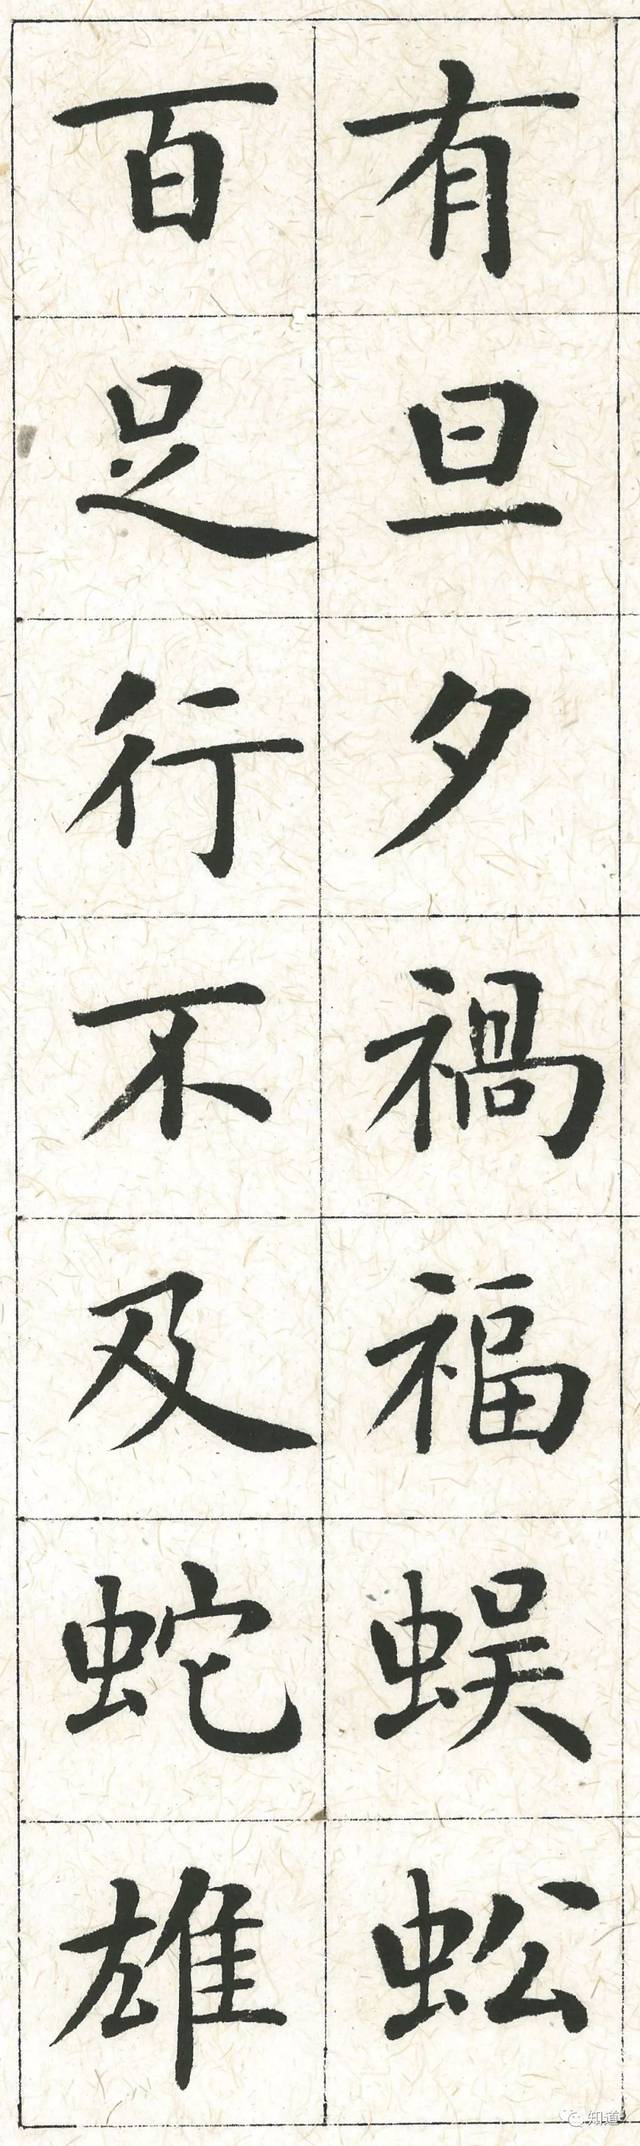 有旦夕禍福蜈蚣
百足行不及蛇雄
知道